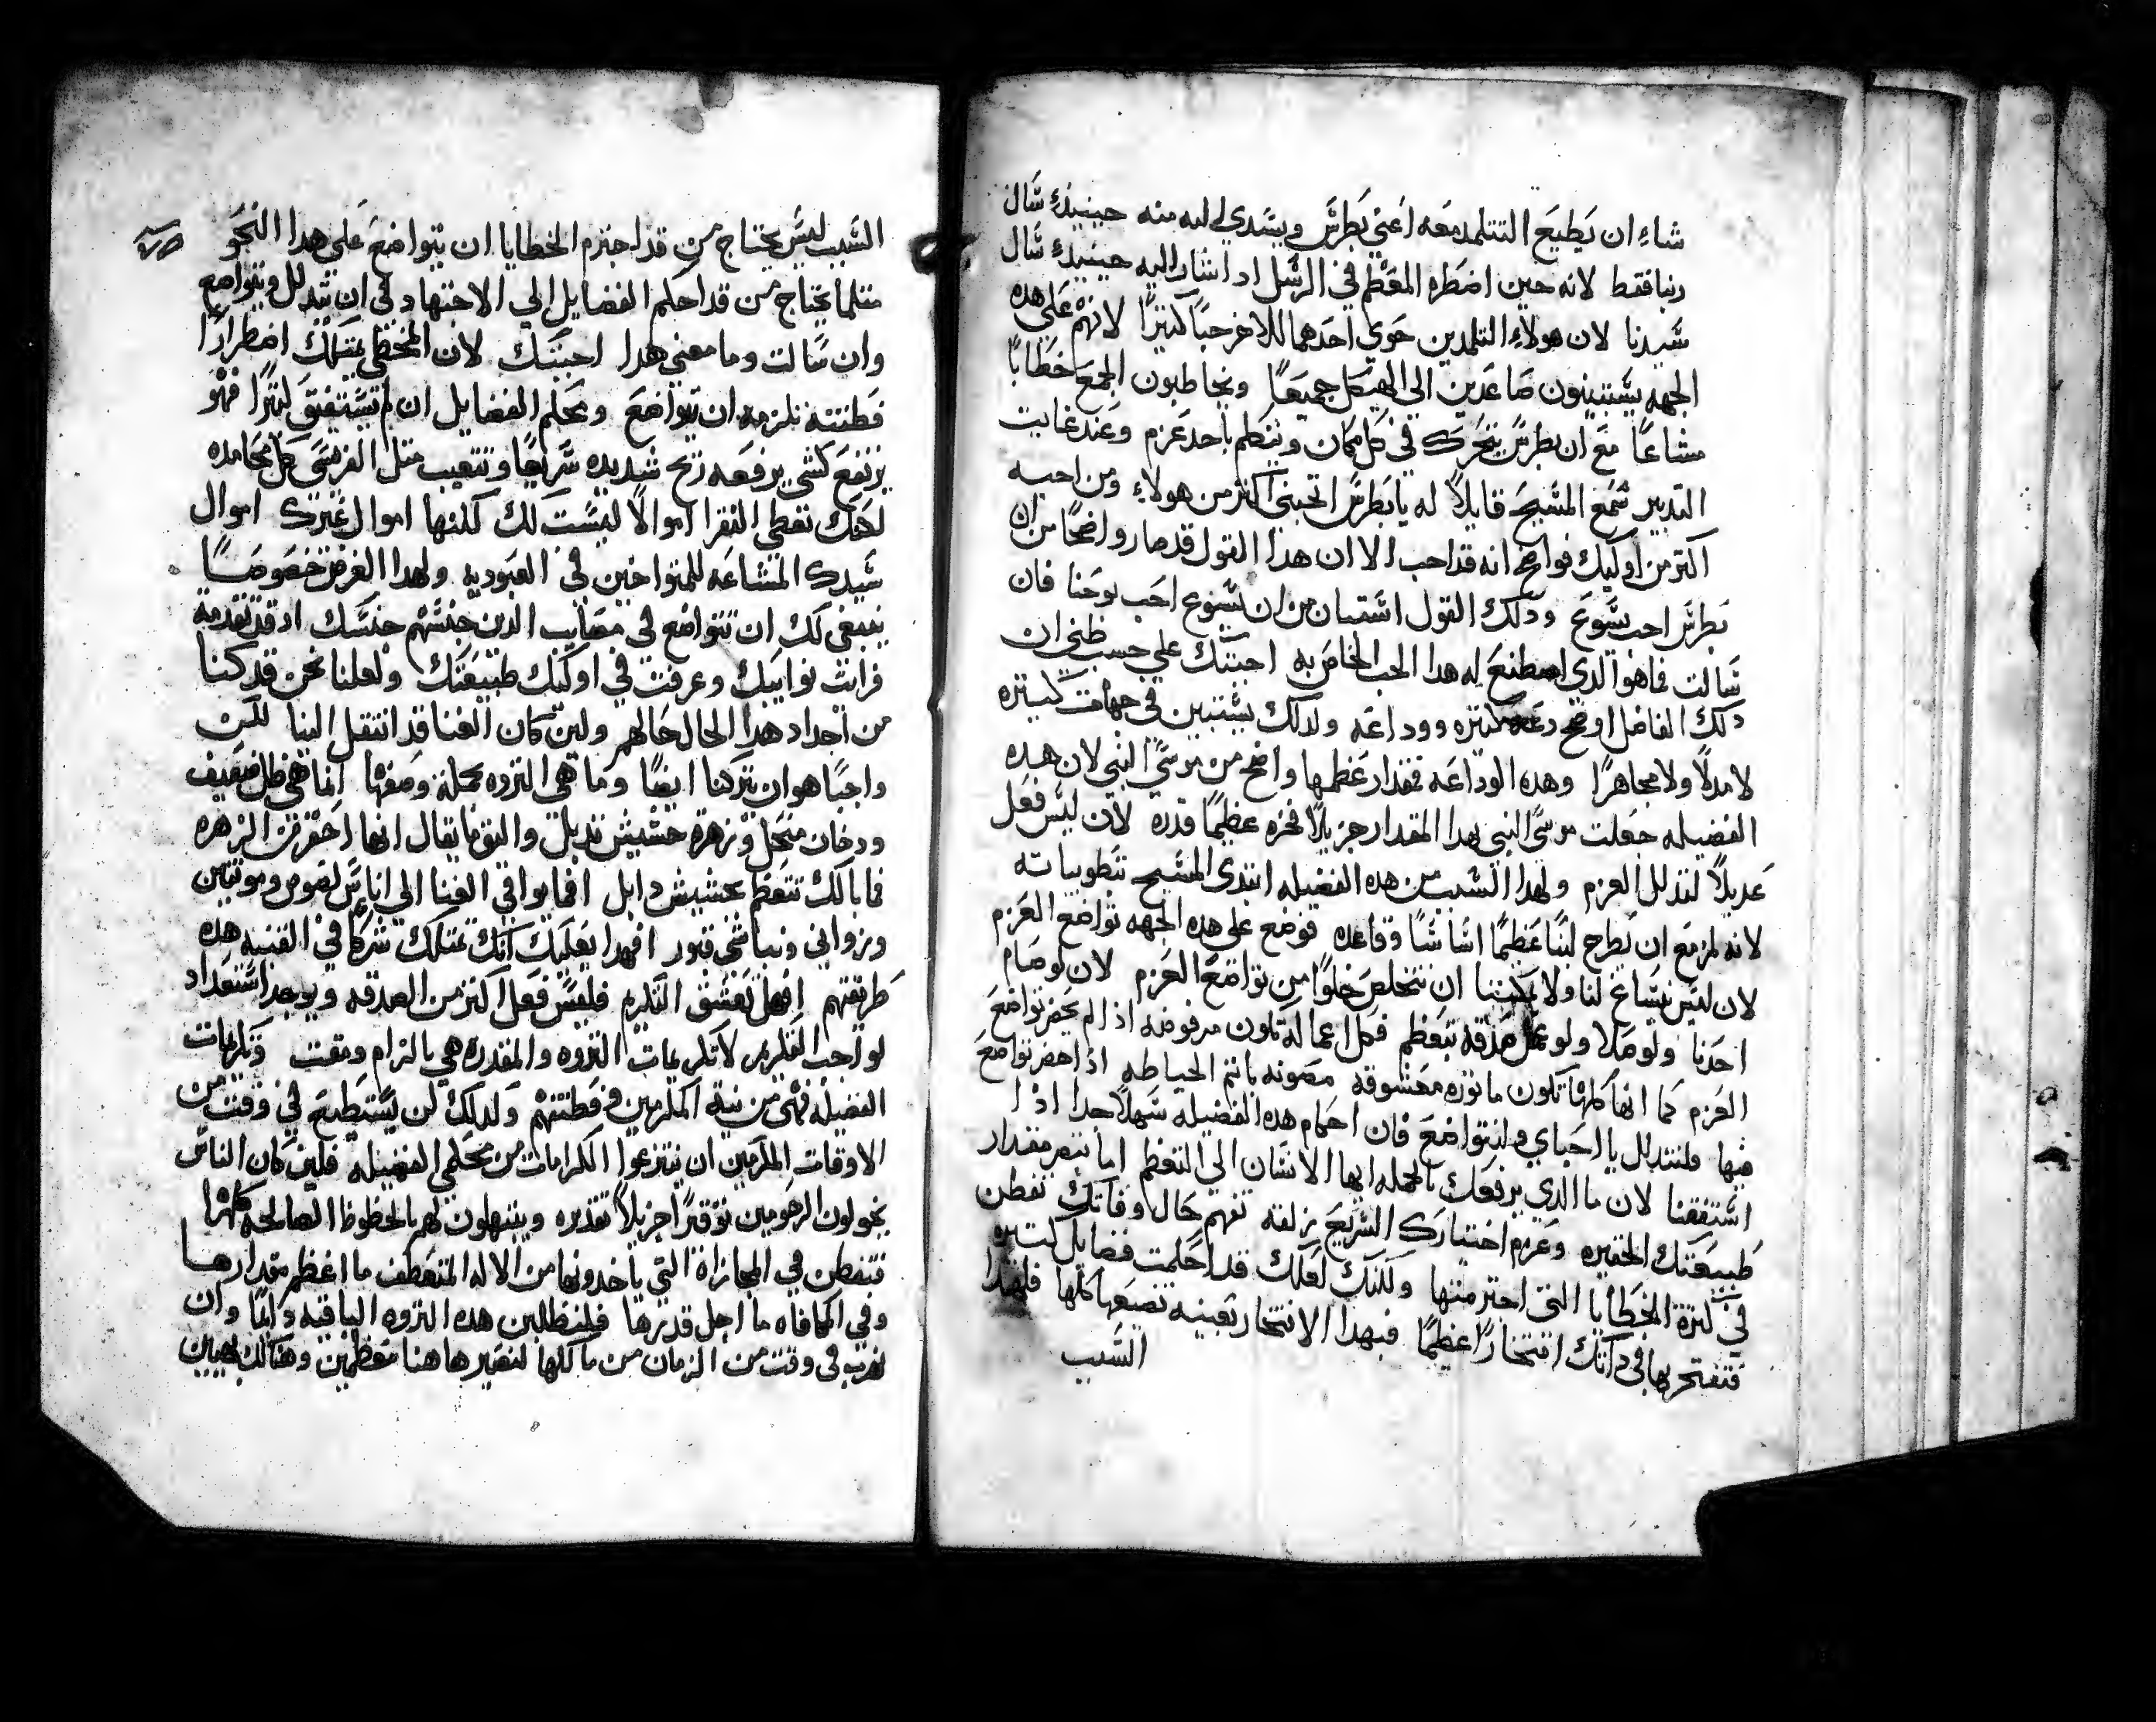 شاء ان يطيع التتلمد معه اعني بطرس ويسدي اليه منه حينيدٍ سال
ربنا فقط لانه حين اضطره المعظم في الرسل اد اشار اليه حينيدٍ سال
سيدنا لان هولاء التلمدين حوي احدهما للاخر حبًا كتيرًا لانهم علي هده
الجهه يستبينون صاعدين الي الهيكل جميعًا ويخاطبون الجمع خطابًا
مشاعًا مع ان بطرس يتحرك في كل مكان ويتكلم باحد عزم وعند غايت
التدبير سمع المسيح قايلاً له يا بطرس اتحبني اكتر من هولاء ومن احبه
اكتر من اوليك فواضح انه قد احب الا ان هدا القول قد صار واضحًا من ان
بطرس احب يسوع ودلك القول استبان من ان يسوع احب يوحنا فان
سالت فما هو الدي اصطنع له هدا الحب الخاص به اجبتك علي حسب ظني ان
دلك الفاضل اوضح دعه كتيره ووداعه ولدلك يستبين في جهات كتيره
لا مدلاً ولا مجاهرًا وهده الوداعه فمقدار عظمها واضح من موسي النبي لان هده
الفضيله جعلت موسي النبي بهدا المقدار جزيلاً فخره عظيمًا قدره لان ليس فعل
عديلاً لتدلل العزم ولهدا السبب من هده الفضيله ابتدي المسيح تطويباته
لانه لمزمع ان يطرح لبنًا عظيمًا اساسًا وقاعده فوضع علي هده الجهه تواضع العزم
لان ليس يساغ لنا ولا يمكننا ان نتخلص خلوًا من تواضع العزم لان لو صام
احدنا ولو صلا ولو عمل صدقه بتعظم فكل اعماله تكون مرفوضه اذا لم يحضر تواضع
العزم كما انها كلها تكون ماتوره معشوقه مصونه باتم الحياطه اذا حضر تواضع
فيها فلنتدلل يا احباي ولنتواضع فان احكام هده الفضيله سهلاً جدًا اذا
استفقنا لان ما الدي يرفعك بالجمله ايها الانسان الي التعظم اما تبصر مقدار
طبيعتك الحقيره وعزم اختيارك السريع زلقه تفهم حال وفاتك تفطن
في كترة الخطايا التي اجترمتها ولكنك لعلك قد احكمت فضايل كتيره
فتفتخر بها في داتك افتخارًا عظيمًا فبهدا الافتخار بعينه تضيعها كلها فلهدا
السبب
السبب ليس يحتاج من قد اجترم الخطايا ان يتواضع علي هدا النحو
متلما يحتاج من قد احكم الفضايل الي الاجتهاد في ان يتدلل ويتواضع
وان سالت وما معني هدا اجبتك لان المخطي يمتلك اضطرارًا
فطنته تلزمه ان يتواضع ومحكم الفضايل ان لم يستفيق كتيرًا فهو
يرتفع كشي يرفعه ريح شديده سريعًا وتتغيب متل الفريسي كل محامده
لعلك تعطي الفقرا اموالاً ليست لك لكنها اموال غيرك اموال
سيدك المشاعه للمتواخين في العبوديه ولهدا الغرض خصوصًا
ينبغي لك ان تتواضع في مصايب الدين جنسهم جنسك اد قد تقدمت
فرايت نوايبك وعرفت في اوليك طبيعتك ولعلنا نحن قد كنا
من اجداد هدا الحال حالهم ولين كان الغنا قد انتقل الينا لكن
واجبًا هو ان يتركنا ايضًا وما هي التروه بجملة وصفها انما هي ظل ضعيف
ودخان منحل وزهرة حشيش تدبل واليق ما يقال انها احقر من الزهره
فما بالك تتعظم بحشيش دابل افما يوافي الغنا الي اناس لصوص وموتين
وزواني ونباشي قبور افهدا يعليك انك تمتلك شركا في القنيه هده
طريقتهم افهل تعشق التكرم فليس فعل اكتر من الصدقه ويوجد استعداد
لو احب التكريم لا تكريمات التروه والمقدره هي بالزام ومقت وتكريمات
الفضيله فهي من نية المكرمين وفطنتهم ولدلك لن يستطيع في وقت من
الاوقات المكرمين ان ينتزعوا الكرامات من محكمي الفضيله فلين كان الناس
يخولون الرحومين توقيرًا جزيلاً تقديره ويبتهلون لهم بالحظوظ الصالحه كلها
فتفطن في المجازاة التي ياخدونها من الاله المتعطف ما اعظم مقدارها
وفي المكافاه ما اجل قدرها فلينظلبن هده التروه الباقيه دايمًا وان
نهرب في وقت من الزمان من ماكلها لنصير هاهنا معظمين وهناك بهيين